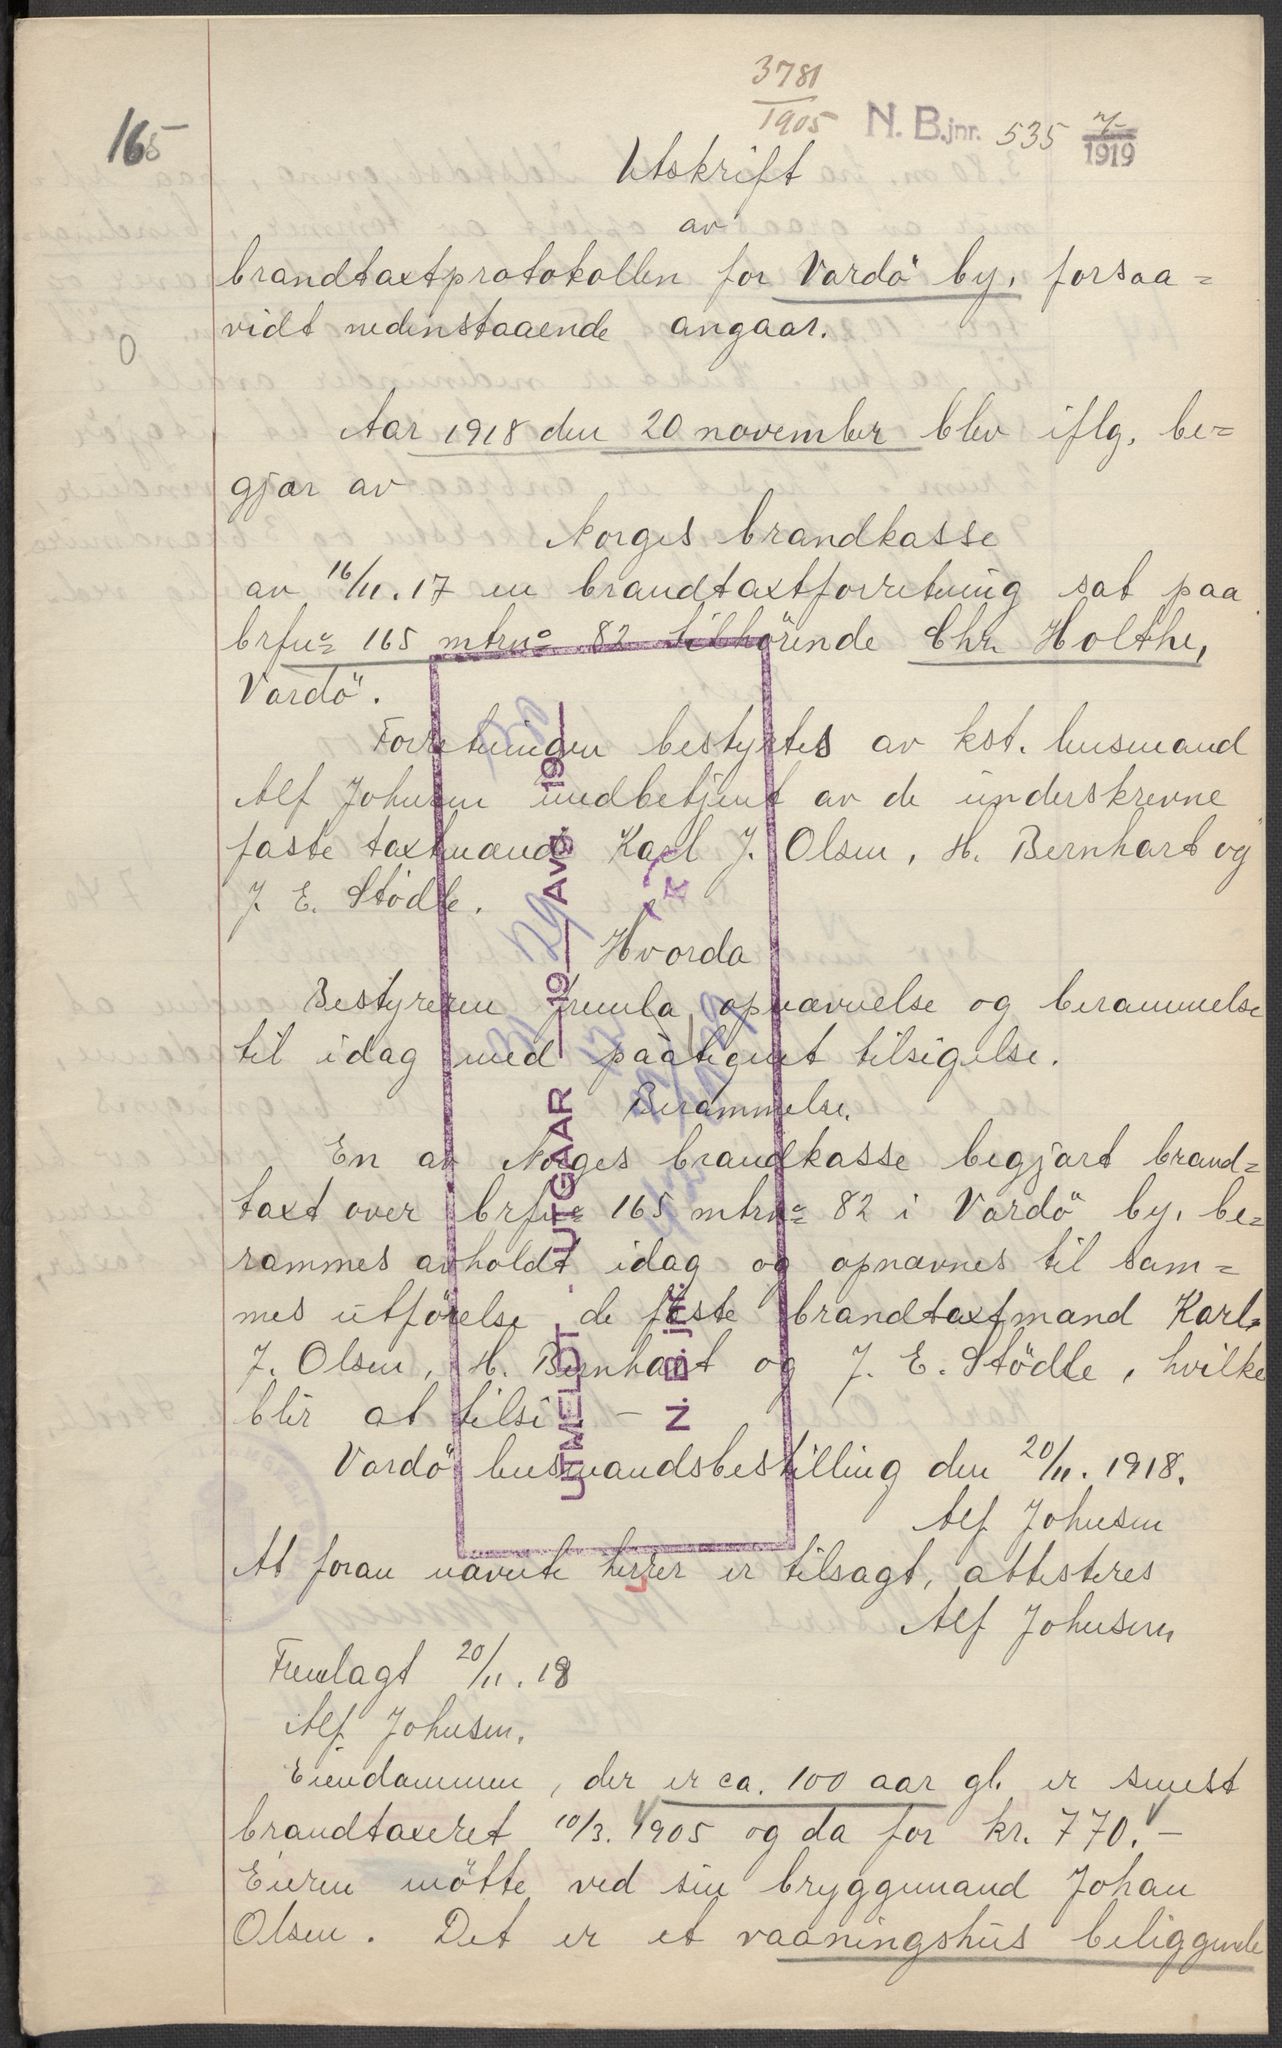 3781
1905
N. B. jnr. 535 7/1919
165
Utskrift
av
brandtaxtprotokollen for Vardö by, forsaa=
vidt nedenstaaende angaar.
0
Aar 1918 den 20 november blev iflg. be=
gjær av
Norges brandkasse
av 16/11. 17 en brandtaxtforretning sat paa
brfno 165 mtrno 82 tilhörende Chr. Holthe,
Vardö.
Forretningen bestyrtes av kst. lensmand
Alf Johnsen medbetjent av de underskrevne
faste taxtmænd Karl J. Olsen, H. Bernhart og
J. E. Stödle.
Hvorda
Bestyreren fremla opnævnelse og berammelse
til idag med paategnet tilsigelse.
Berammelse.
En av Norges brandkasse begjært brand=
taxt over brfno 165 mtrno 82 i Vardö by, be=
rammes avholdt idag og opnævnes til sam=
mes utförelse de faste brandtaxtmænd Karl
J. Olsen, H. Bernhart og J. E. Stödle, hvilke
blir at tilsi –
Vardö lensmandsbestilling den 20/11. 1918.
Alf Johnsen
At foran nævnte herrer er tilsagt, attesteres
Alf Johnsen
Fremlagt 20/11. 18
Alf Johnsen.
Eiendommen, der er ca. 100 aar gl. er senest
brandtaxeret 10/3. 1905 og da for kr. 770.–
Eieren mötte ved sin bryggemand Johan
Olsen. Det er et vaaningshus beliggende
UTMELDT . UTGAAR 19 29 AVG. 19
N. B. jnr.